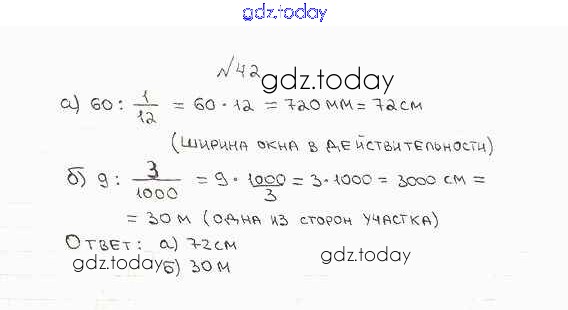 gdz.today
№42
gdz.today
а) 60 : 1/12 = 60 · 12 = 720 мм = 72 см
(ширина окна в действительности)
б) 9 : 3/1000 = 9 · 1000/3 = 3 · 1000 = 3000 см =
= 30 м (одна из сторон участка)
Ответ: а) 72 см
gdz.today
б) 30 м
gdz.today